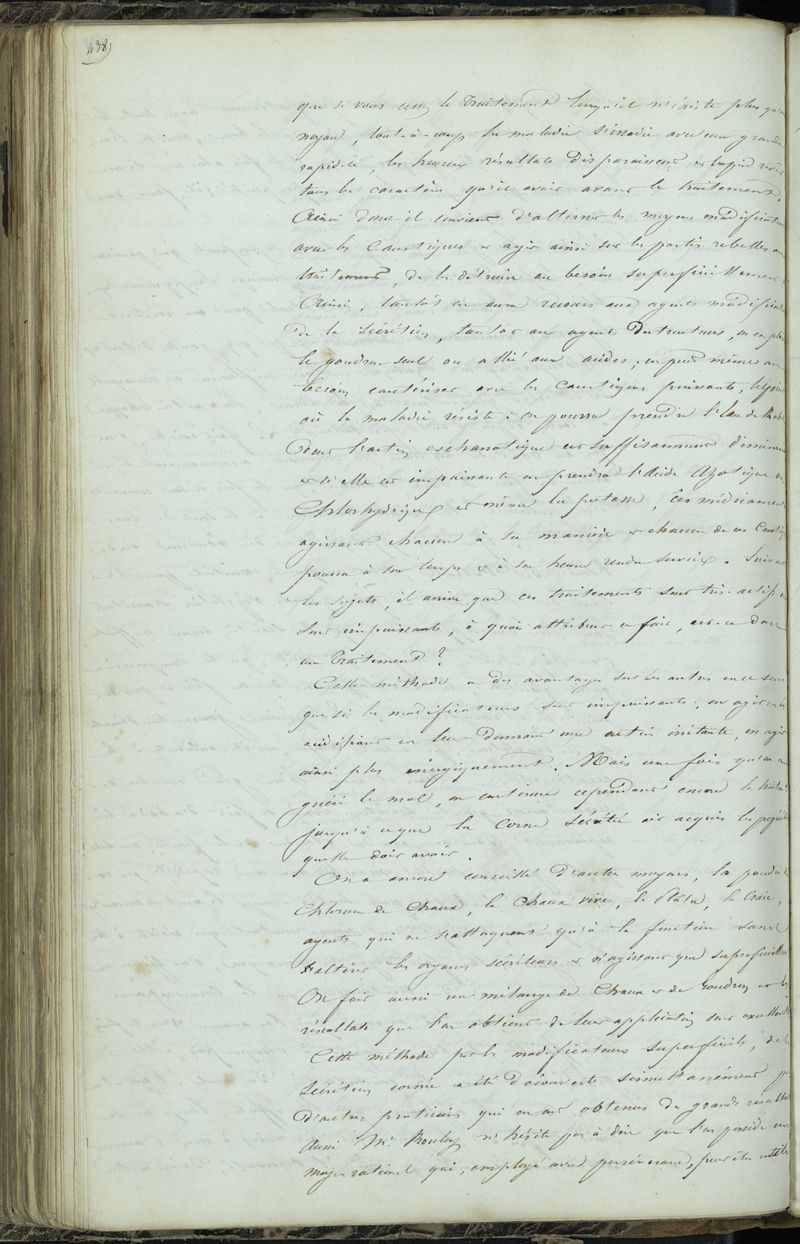 438)
que si vous cessez le traitement lorsqu'il n'existe plus qu'un
noyau, tout-à-coup la maladie s'irradie avec une grande
rapidité, les heureux résultats disparaissent et le pied
tous les caractères qu'il avait avant le traitement.
Ainsi donc il convient d'alterner les moyens modificateurs
avec les caustiques et agir ainsi sur les parties rebelles au
traitement, de les détruire au besoin superficiellement.
Ainsi, tantôt on aura recours aux agents modificateurs
de la sécrétion, tantôt aux agents destructeurs, on emploie
le goudron seul ou allié aux acides; on peut même au
besoin cautériser avec les caustiques puissants, les points
où la maladie résiste: on pourra prendre l'eau de Rabel
dont l'action escharotique est suffisamment
et si elle est impuissante on prendra l'acide Azotique ou
Chlorhydrique et même la potasse, ces médicaments
agissant chacun à sa manière et chacun de ces
pourra à son temps et à son heure rendre service. Suivant
les sujets, il arrive que ces traitements sont très actifs ou
sont impuissants, à quoi attribuer ce fait, est-ce donc
au traitement?
Cette méthode a des avantages sur les autres en ce sens
que si les modificateurs sont impuissants, on agit en les
acidifiant et leur donnant une action irritante, on agit
ainsi plus énergiquement. Mais une fois qu'on a
guéri le mal, on continue cependant encore le
jusqu'à ce que la corne sécrétée ait acquis les propriétés
qu'elle doit avoir.
On a encore conseillé d'autres moyens, la poudre de
Chlorure de Chaux, la Chaux vive, le Plâtre, la Craie,
agents qui ne s'attaquent qu'à la fonction sans
altérer les organes sécréteurs et n'agissant que superficiellement
On fait aussi un mélange de Chaux et de Goudron et les
résultats que l'on obtient de leur application sont excellents
Cette méthode par les modificateurs superficiels, de la
sécrétion cornée a été découverte simultanément par
d'autres praticiens qui en ont obtenu de grands résultats
Aussi Mr. Bouley n'hésite pas à dire que l'on possède un
moyen rationnel qui, employé avec persévérance, peut être